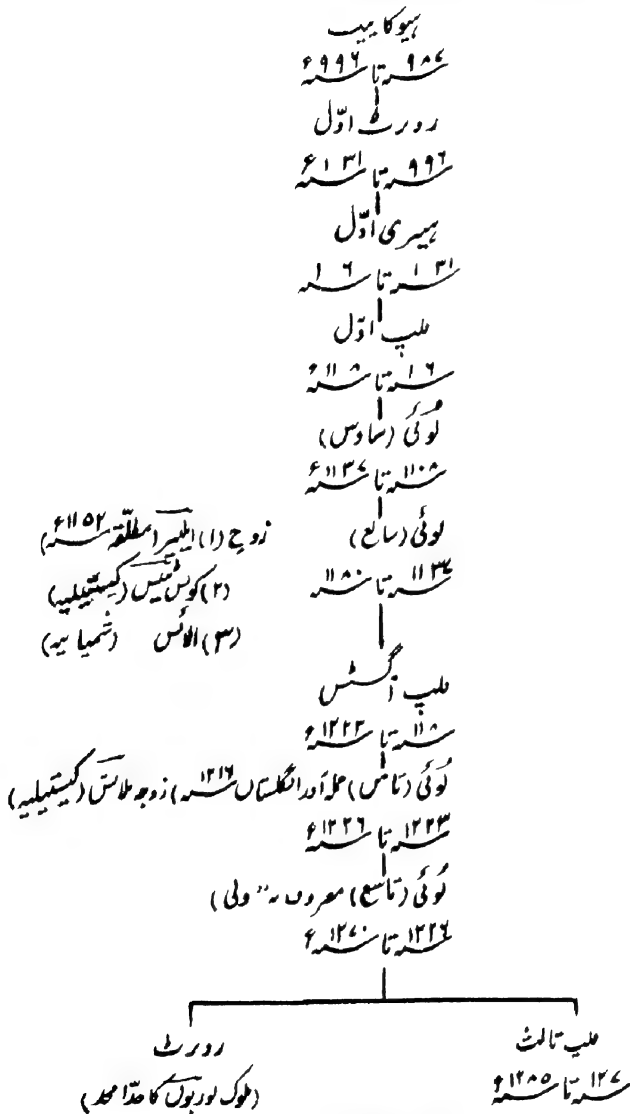 ہیوکاپیٹ
۹۸۷ء تا ۹۹۶ء
روبرٹ اوّل
۹۹۶ء تا ۱۰۳۱ء
ہینری اوّل
۱۰۳۱ء تا ۱۰۶۰ء
فلپ اوّل
۱۰۶۰ء تا ۱۱۰۸ء
لوئی (سادس)
۱۱۰۸ء تا ۱۱۳۷ء
لوئی (سابع) زوج (۱) ایلینر (مطلّقہ ۱۱۵۲ء)
(۲) کونسٹینس (کیسٹیلیہ)
۱۱۳۷ء تا ۱۱۸۰ء
(۳) الائس (شمپانیہ)
فلپ آگسٹس
۱۱۸۰ء تا ۱۲۲۳ء
لوئی (ثامن) حملہ آور انگلستان ۱۲۱۶ء) زوجہ بلانش (کیسٹیلیہ)
۱۲۲۳ء تا ۱۲۲۶ء
لوئی (تاسع) معروف بہ "ولی)
۱۲۲۶ء تا ۱۲۷۰ء
فلپ ثالث
۱۲۷۰ء تا ۱۲۸۵ء
روبرٹ
(ملوک بوربون کا جدّ امجد)